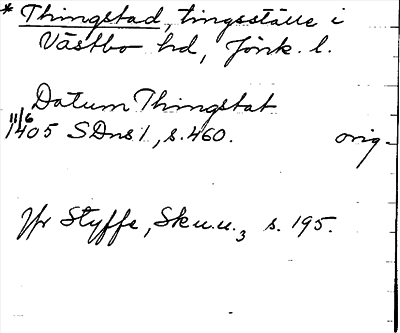 * Thingstad, tingsställe i
Västbo hd, Jönk. l.
Datum Thingstat
11/6
1405 SDns 1, s. 460. orig.
Jfr Styffe, Sku.u.3 s. 195.